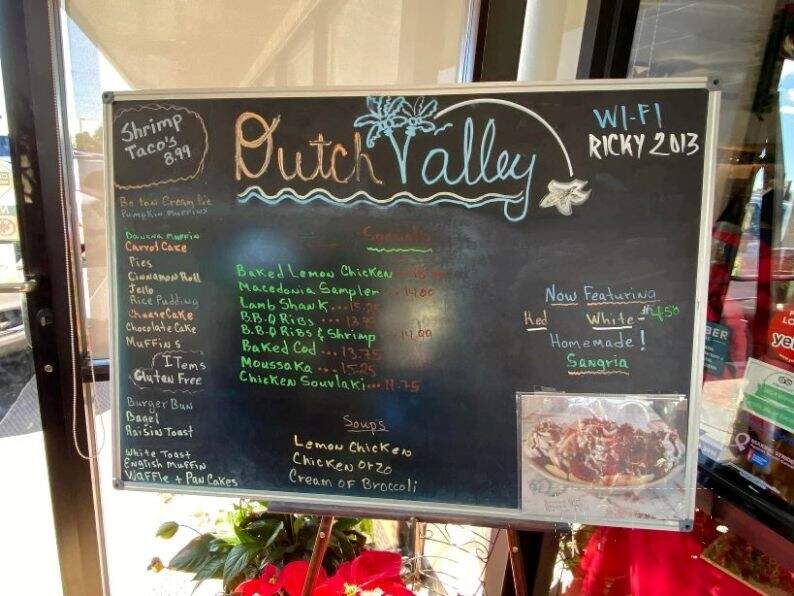 Shrimp
Taco's
8.99
Dutch Valley
WI-FI
RICKY 2013
Boston Cream Pie
Pumpkin Muffins
Banana Muffin
Carrot Cake
Pies
Cinnamon Roll
Jello
Rice Pudding
Cheese Cake
Chocolate Cake
Muffins
ITems
Gluten Free
Burger Bun
Bagel
Raisin Toast
White Toast
English Muffin
Waffle + Pancakes
Specials
Baked Lemon Chicken
Macedonia Sampler .. 14.00
Lamb Shank ... 15.25
B.B.Q Ribs ...
B.B.Q Ribs & Shrimp .. 14.00
Baked Cod ... 13.75
Moussaka .... 15.25
Chicken Souvlaki... 11.75
Soups
Lemon Chicken
Chicken orzo
Cream of Broccoli
Now Featuring
Red White $4.50
Homemade!
Sangria